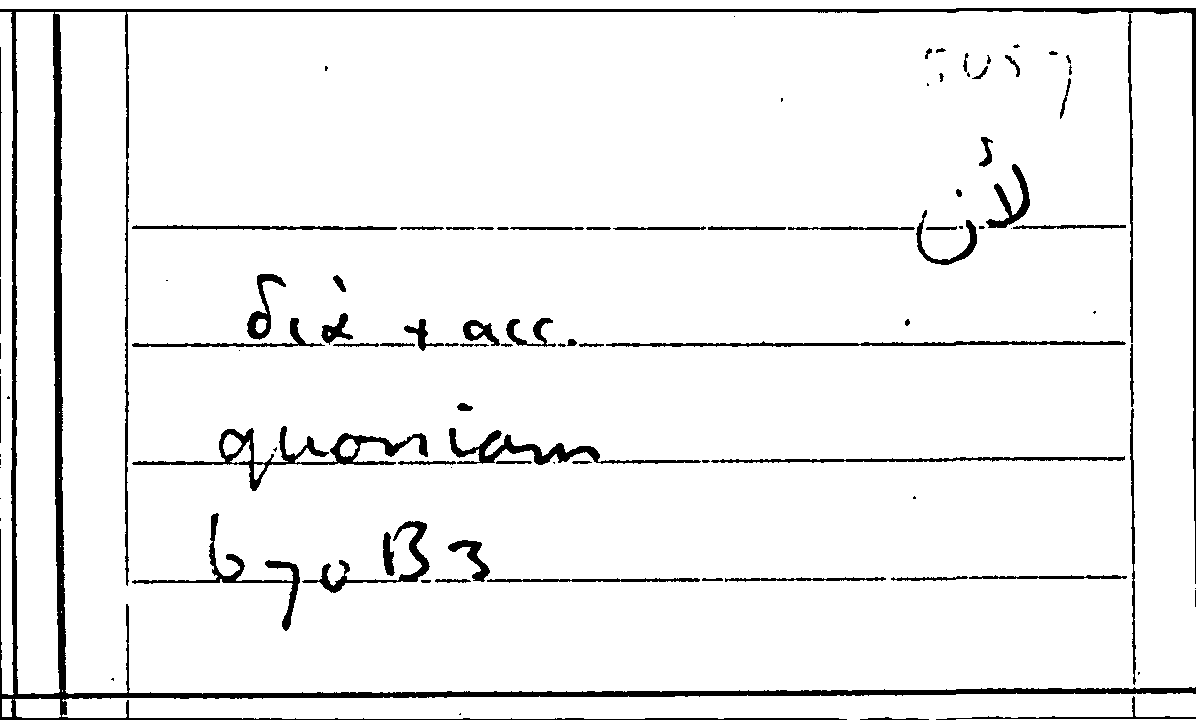 لأن
διὰ + acc.
quoniam
670 B3